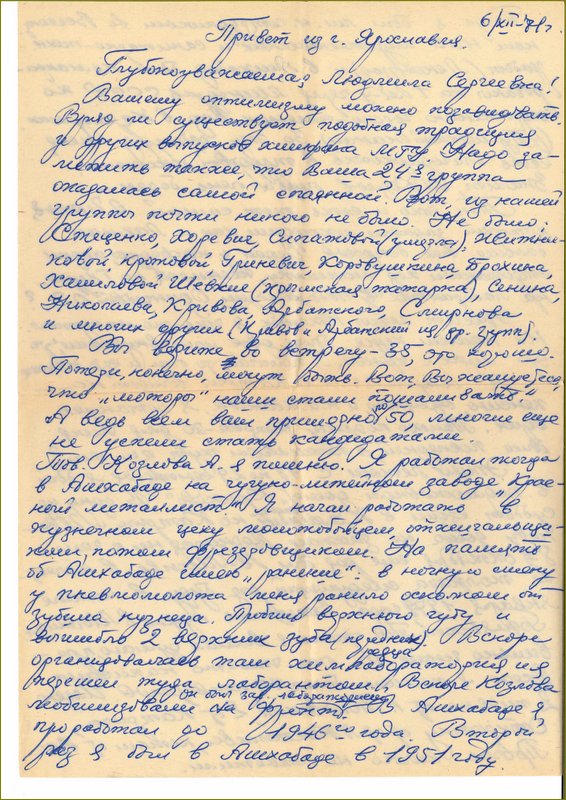 6/XII-78г.
Привет из г. Ярославля.
Глубокоуважаемая, Людмила Сергеевна!
Вашему оптимизму можно позавидовать.
Вряд ли существует подобная традиция
у других выпусков химфака МГУ. Надо за-
метить также, что Ваша 24я группа
оказалась самой спаянной. Вот, из нашей
группы почти никого не было. Не было:
Стеценко, Хоревич,
ковой, Кротовой, Гриневич, Коровушкина, Ерохина,
Хашировой Шевкие (крымская татарка), Сенина,
Николаева, Кривова, Арбатского, Смирнова
и многих других (Кривов и Арбатский из др. групп).
Вы верите во встречу-35, это хорошо.
Потери, конечно, могут быть. Вот, Вы жалуетесь,
что „моторы" наши стали пошаливать".
А ведь всем вам примерно по 50, многие еще
не успели стать кандидатами.
Тов. Козлова А. я помню. Я работал тогда
в Ашхабаде на чугуно-литейном заводе „Крас-
ный металлист". Я начал работать в
кузнечном цеху молотобойцем, отжигальщи-
ком, потом фрезеровщиком. На память
об Ашхабаде имею „ранение": в ночную смену
у пневмомолота меня ранило осколком от
зубила кузнеца. Пробило верхнюю губу и
вышибло 2 верхних зуба (передних). Вскоре
организовалась там химлаборатория и я
перешел туда лаборантом. Вскоре Козлова
он был зав. лабораторией
мобилизовали на фронт. В Ашхабаде я
проработал до 1946го года. Второй
раз я был в Ашхабаде в 1951 году.